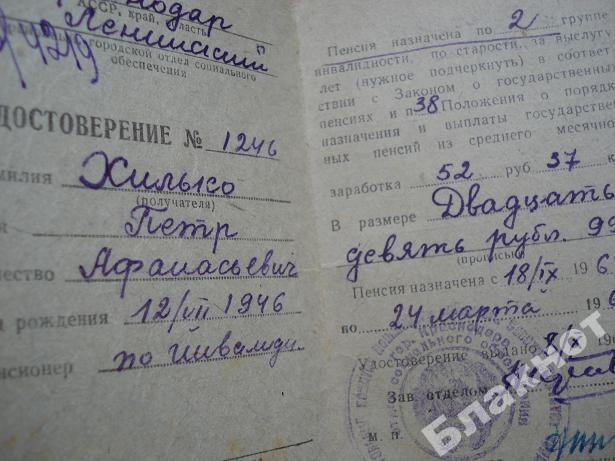 нодар
АССР, край, область
Ленинский
городской отдел социального
обеспечения
ДОСТОВЕРЕНИЕ № 1246
милия Хилько
(получателя)
Петр
чество Афанасьевич
рождения 12/VII 1946
нсионер по инвалидн.
Пенсия назначена по 2 группе
инвалидности, по старости, за выслугу
лет (нужное подчеркнуть) в соответ
ствии с Законом о государственны
пенсиях и п. 38 Положения о порядк
назначения и выплаты государстве
ных пенсий из среднего месячно
заработка 52 руб 37 к
В размере Двадцать
девять рубл. 93
(прописью)
Пенсия назначена с 18/IX 196
по 24 марта 196
Удостоверение выдано 8/X 196
Зав. отделом
м. п.
Блокнот